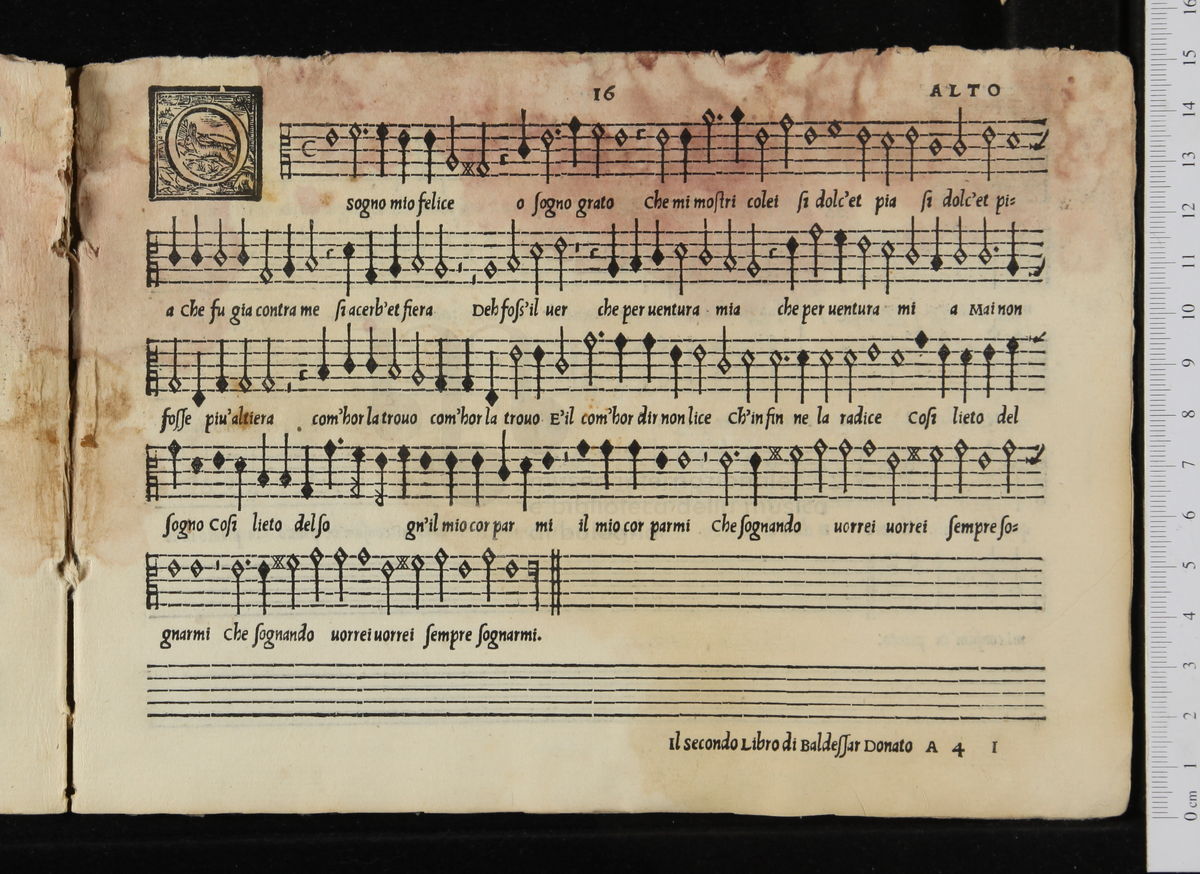 16 ALTO
O sogno mio felice o sogno grato Che mi mostri colei si dolc'et pia si dolc'et pi=
a Che fu gia contra me si acerb'et fiera Deh foss'il uer che per uentura mia che per uentura mi a Mai non
fosse piu'altiera com'hor la trouo com'hor la trouo E'il com'hor dir non lice Ch'in fin ne la radice Cosi lieto del
sogno Cosi lieto del so gn'il mio cor par mi il mio cor parmi Che sognando uorrei uorrei sempre so=
gnarmi Che sognando uorrei uorrei sempre sognarmi.
Il secondo Libro di Baldessar Donato A 4 I
0 cm 1 2 3 4 5 6 7 8 9 10 11 12 13 14 15 16